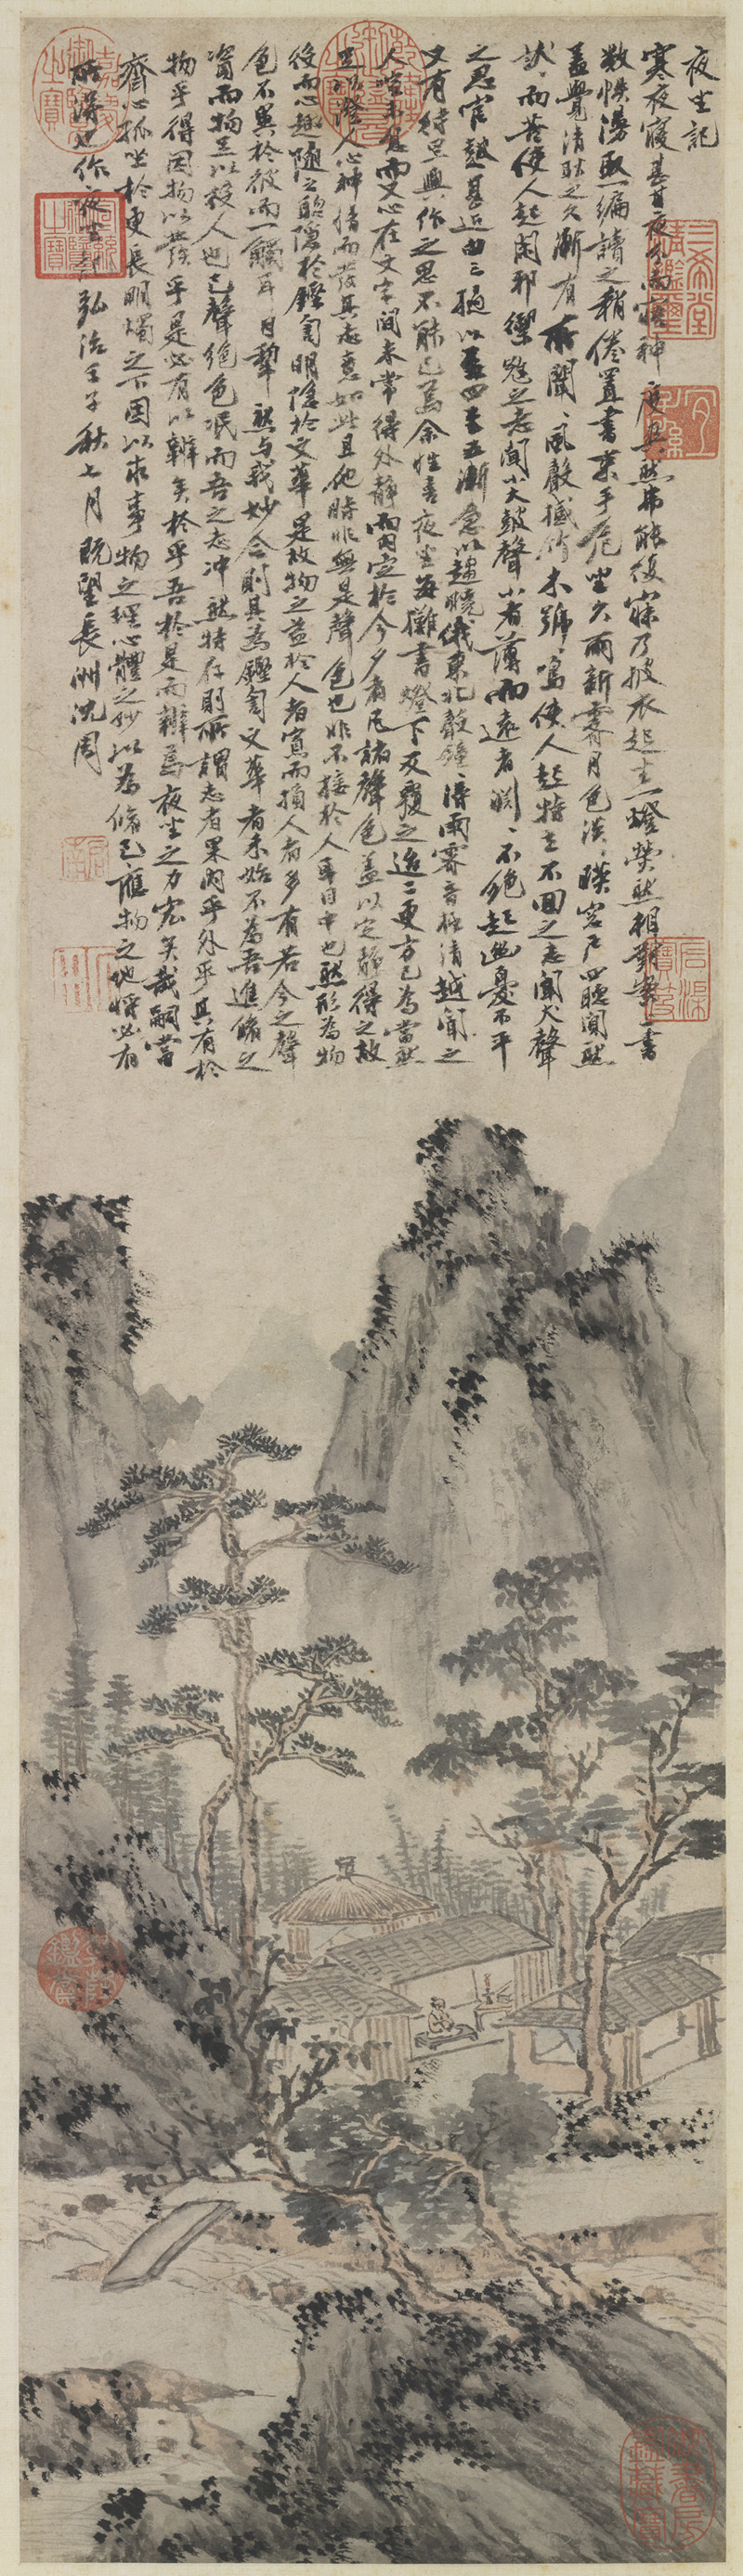 夜坐記
寒夜寢甚甘夜分而寤神度爽然弗能復寐乃披衣起坐一燈熒然相對案上書
數帙漫取一編讀之稍倦置書束手危坐久雨新霽月色淡淡映窗戶四聽闃然
蓋覺清耿之久漸有所聞聞風聲撼竹木號號鳴使人起特立不回之志聞犬聲
狀狀而苦使人起閑邪禦寇之志聞小大鼓聲小者薄而遠者淵淵不絕起幽憂不平
之思官鼓甚近由三撾以至四至五漸急以趨曉俄東北聲鐘鐘得雨霽音極清越聞之
又有待旦興作之思不能已焉余性喜夜坐每攤書燈下反覆之迨二更方已為當然
人喧未息而又心在文字間未常得外靜而內定於今夕者凡諸聲色蓋以定靜得之故
足以澄人心神情而發其志意如此且他時非無是聲色也非不接於人耳目中也然形為物
役而心趣隨之聰隱於鏗訇明隱於文華是故物之益於人者寡而損人者多有若今之聲
色不異於彼而一觸耳目犁然與我妙合則其為鏗訇文華者未始不為吾進脩之
資而物足以役人也已聲絕色泯而吾之志沖然特存則所謂志者果內乎外乎其有於
物乎得因物以發乎是必有以辨矣於乎吾於是而辨焉夜坐之力宏矣哉嗣當
齋心孤坐於更長明燭之下因以求事物之理心體之妙以為脩己應物之地將必有
所得也作夜坐記弘治壬子秋七月既望長洲沈周
三希堂精鑑璽
宜子孫
石渠寶笈
嘉慶御覽之寶
乾隆御覽之寶
宣統御覽之寶
啟南
乾隆鑑賞
御書房鑑藏寶